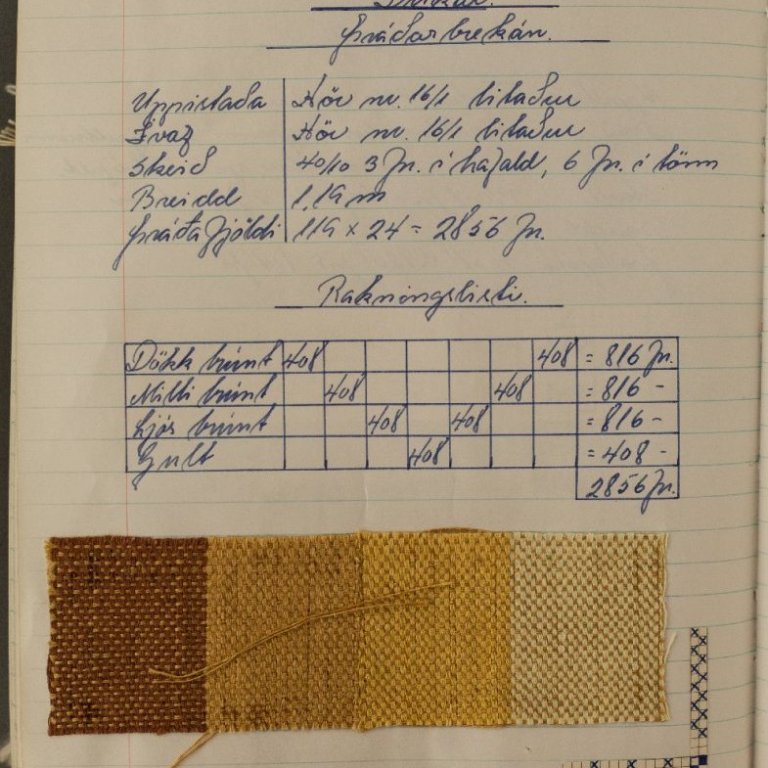 Þráðarbrekán.
Uppistaða Hör nr. 16/1 litaður
Ívaf Hör nr. 16/1 litaður
Skeið 40/10 3 Þr. í hafald, 6 Þr. í tönn
Breidd 1.19 m
Þráðafjöldi 119 x 24 = 2856 Þr.
Rakningslisti.
Dökk brúnt 408 408 = 816 Þr.
Milli brúnt 408 408 = 816 -
Ljós brúnt 408 408 = 816 -
Gult 408 = 408 -
2856 Þr.